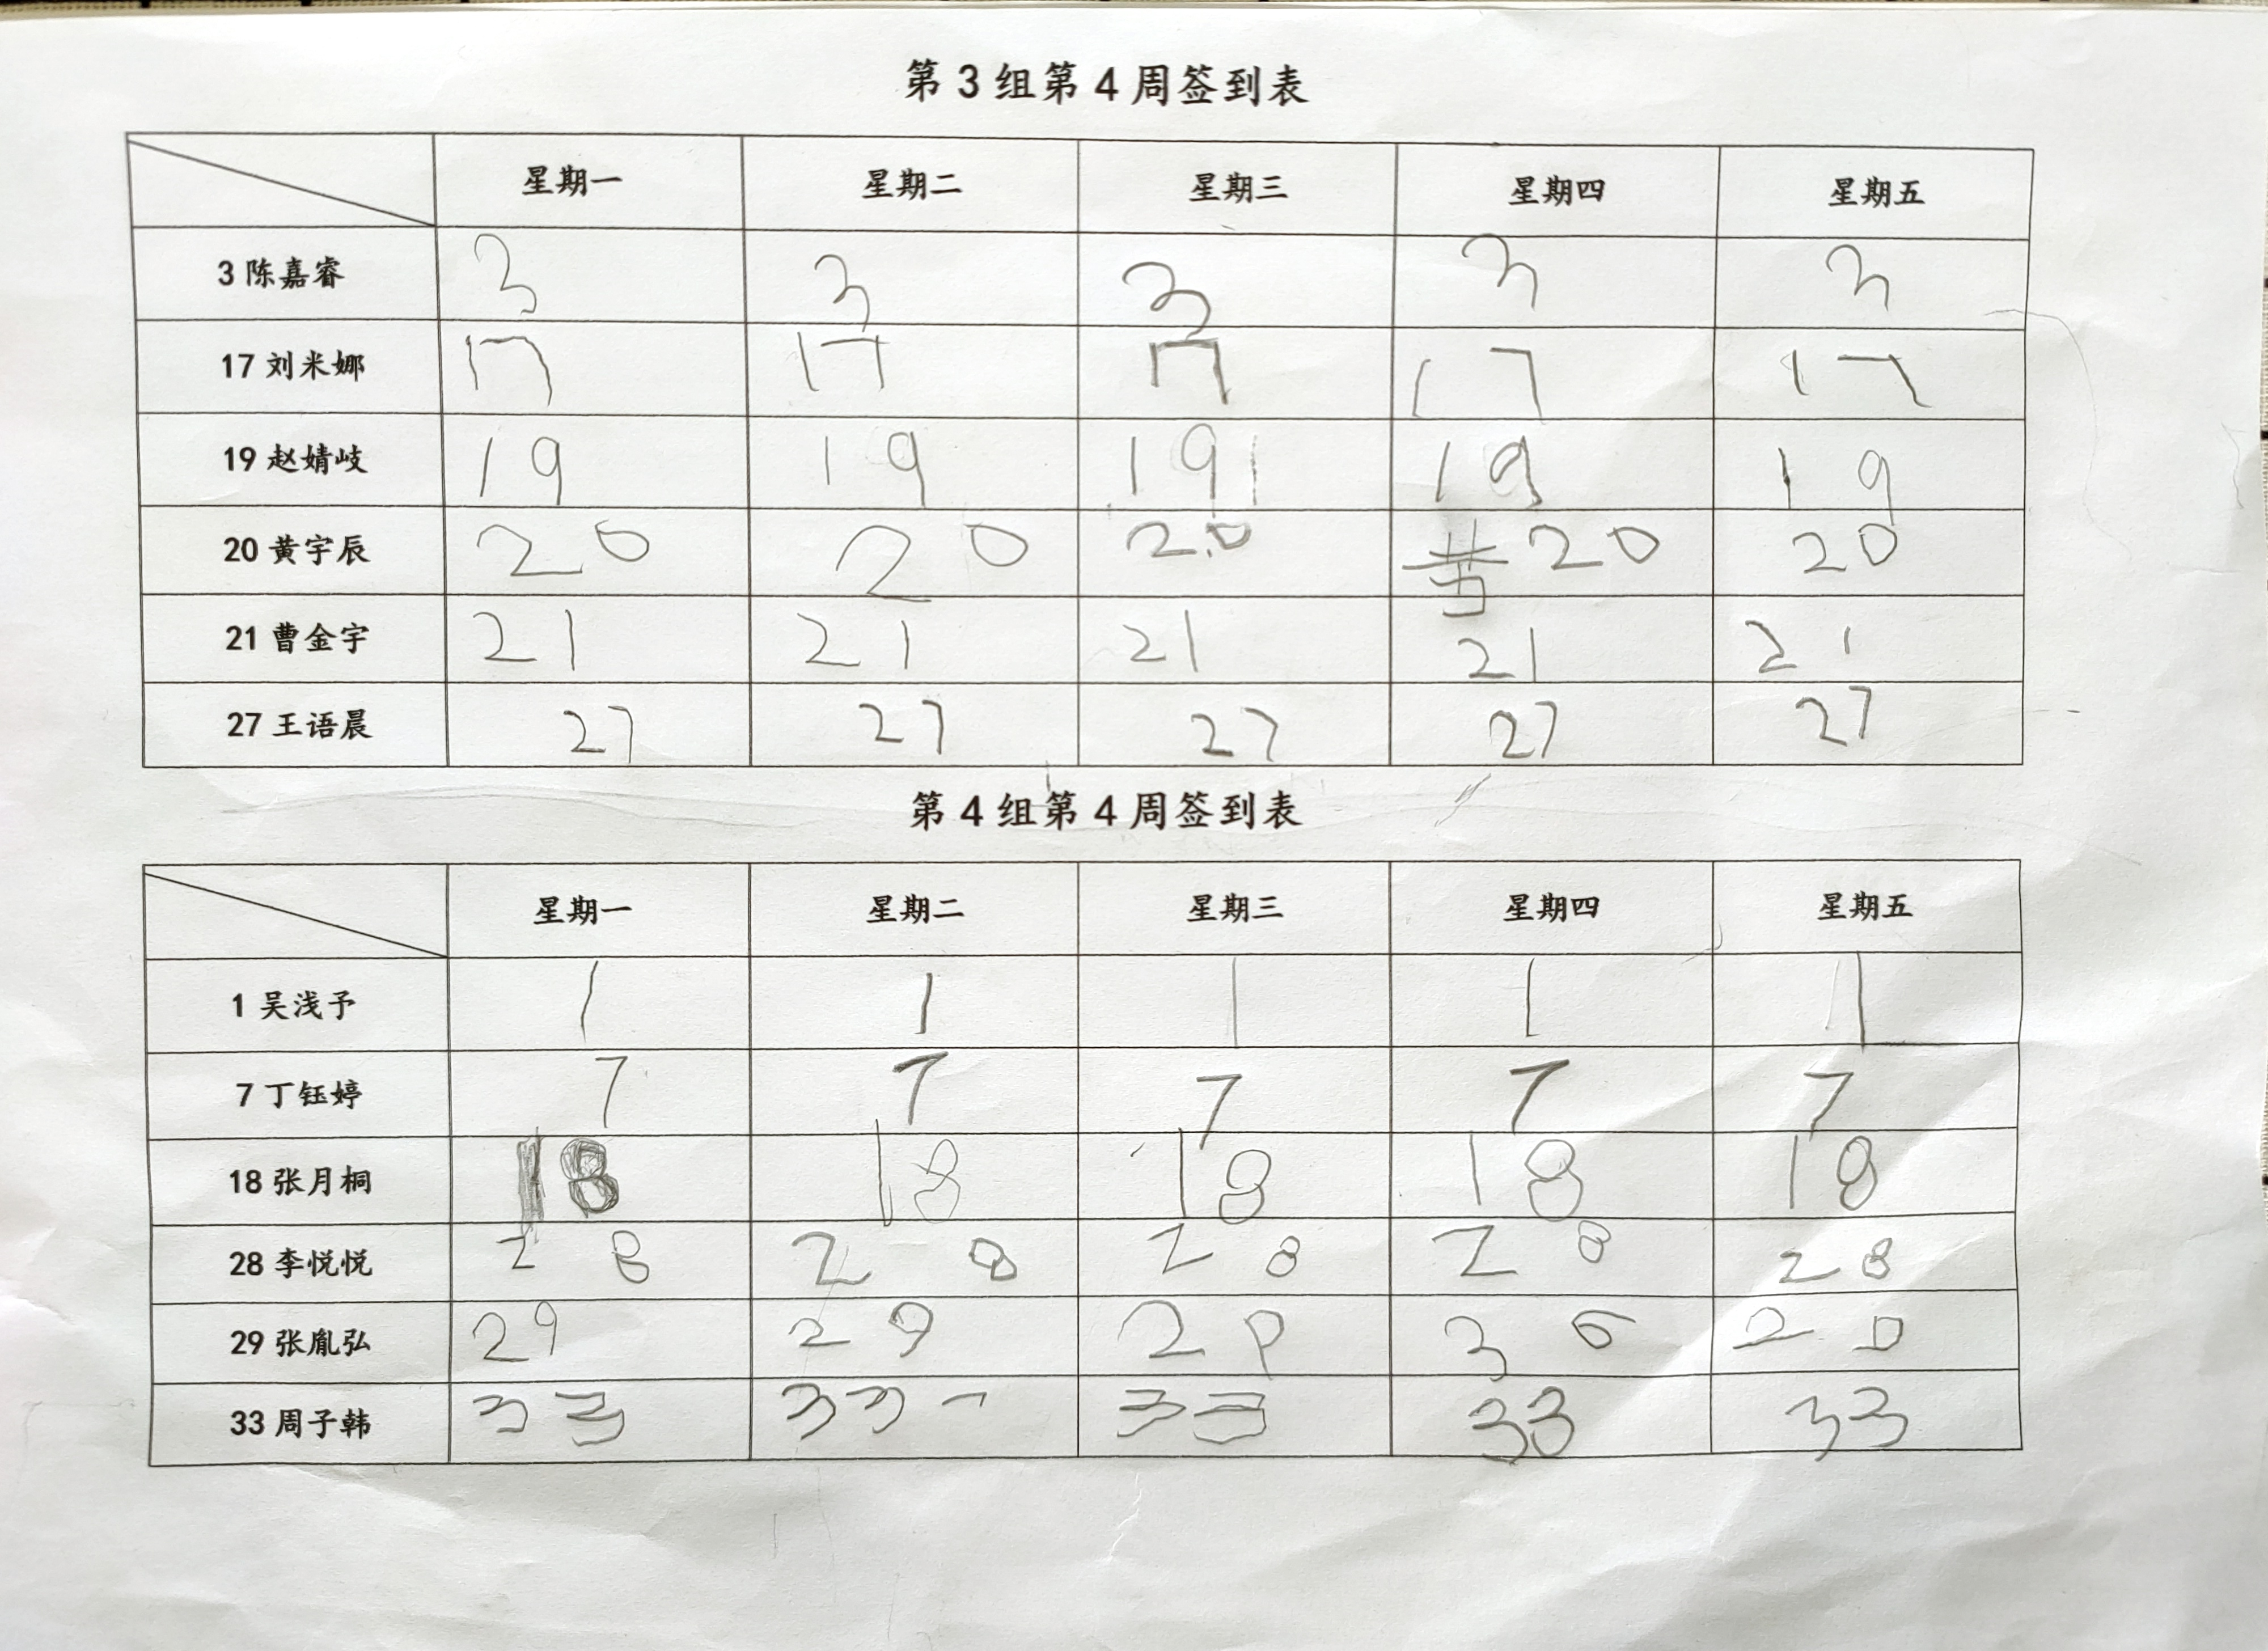 第3组第4周签到表
星期一 星期二 星期三 星期四 星期五
3陈嘉睿 3 3 3 3 3
17刘米娜 17 17 17 17 17
19赵婧岐 19 19 191 19 19
20黄宇辰 20 20 20 20 20
21曹金宇 21 21 21 21 21
27王语晨 27 27 27 27 27
第4组第4周签到表
星期一 星期二 星期三 星期四 星期五
1吴浅予 1 1 1 1 1
7丁钰婷 7 7 7 7 7
18张月桐 18 18 18 18 18
28李悦悦 28 28 28 28 28
29张胤弘 29 29 29
33周子韩 33 33 33 33 33